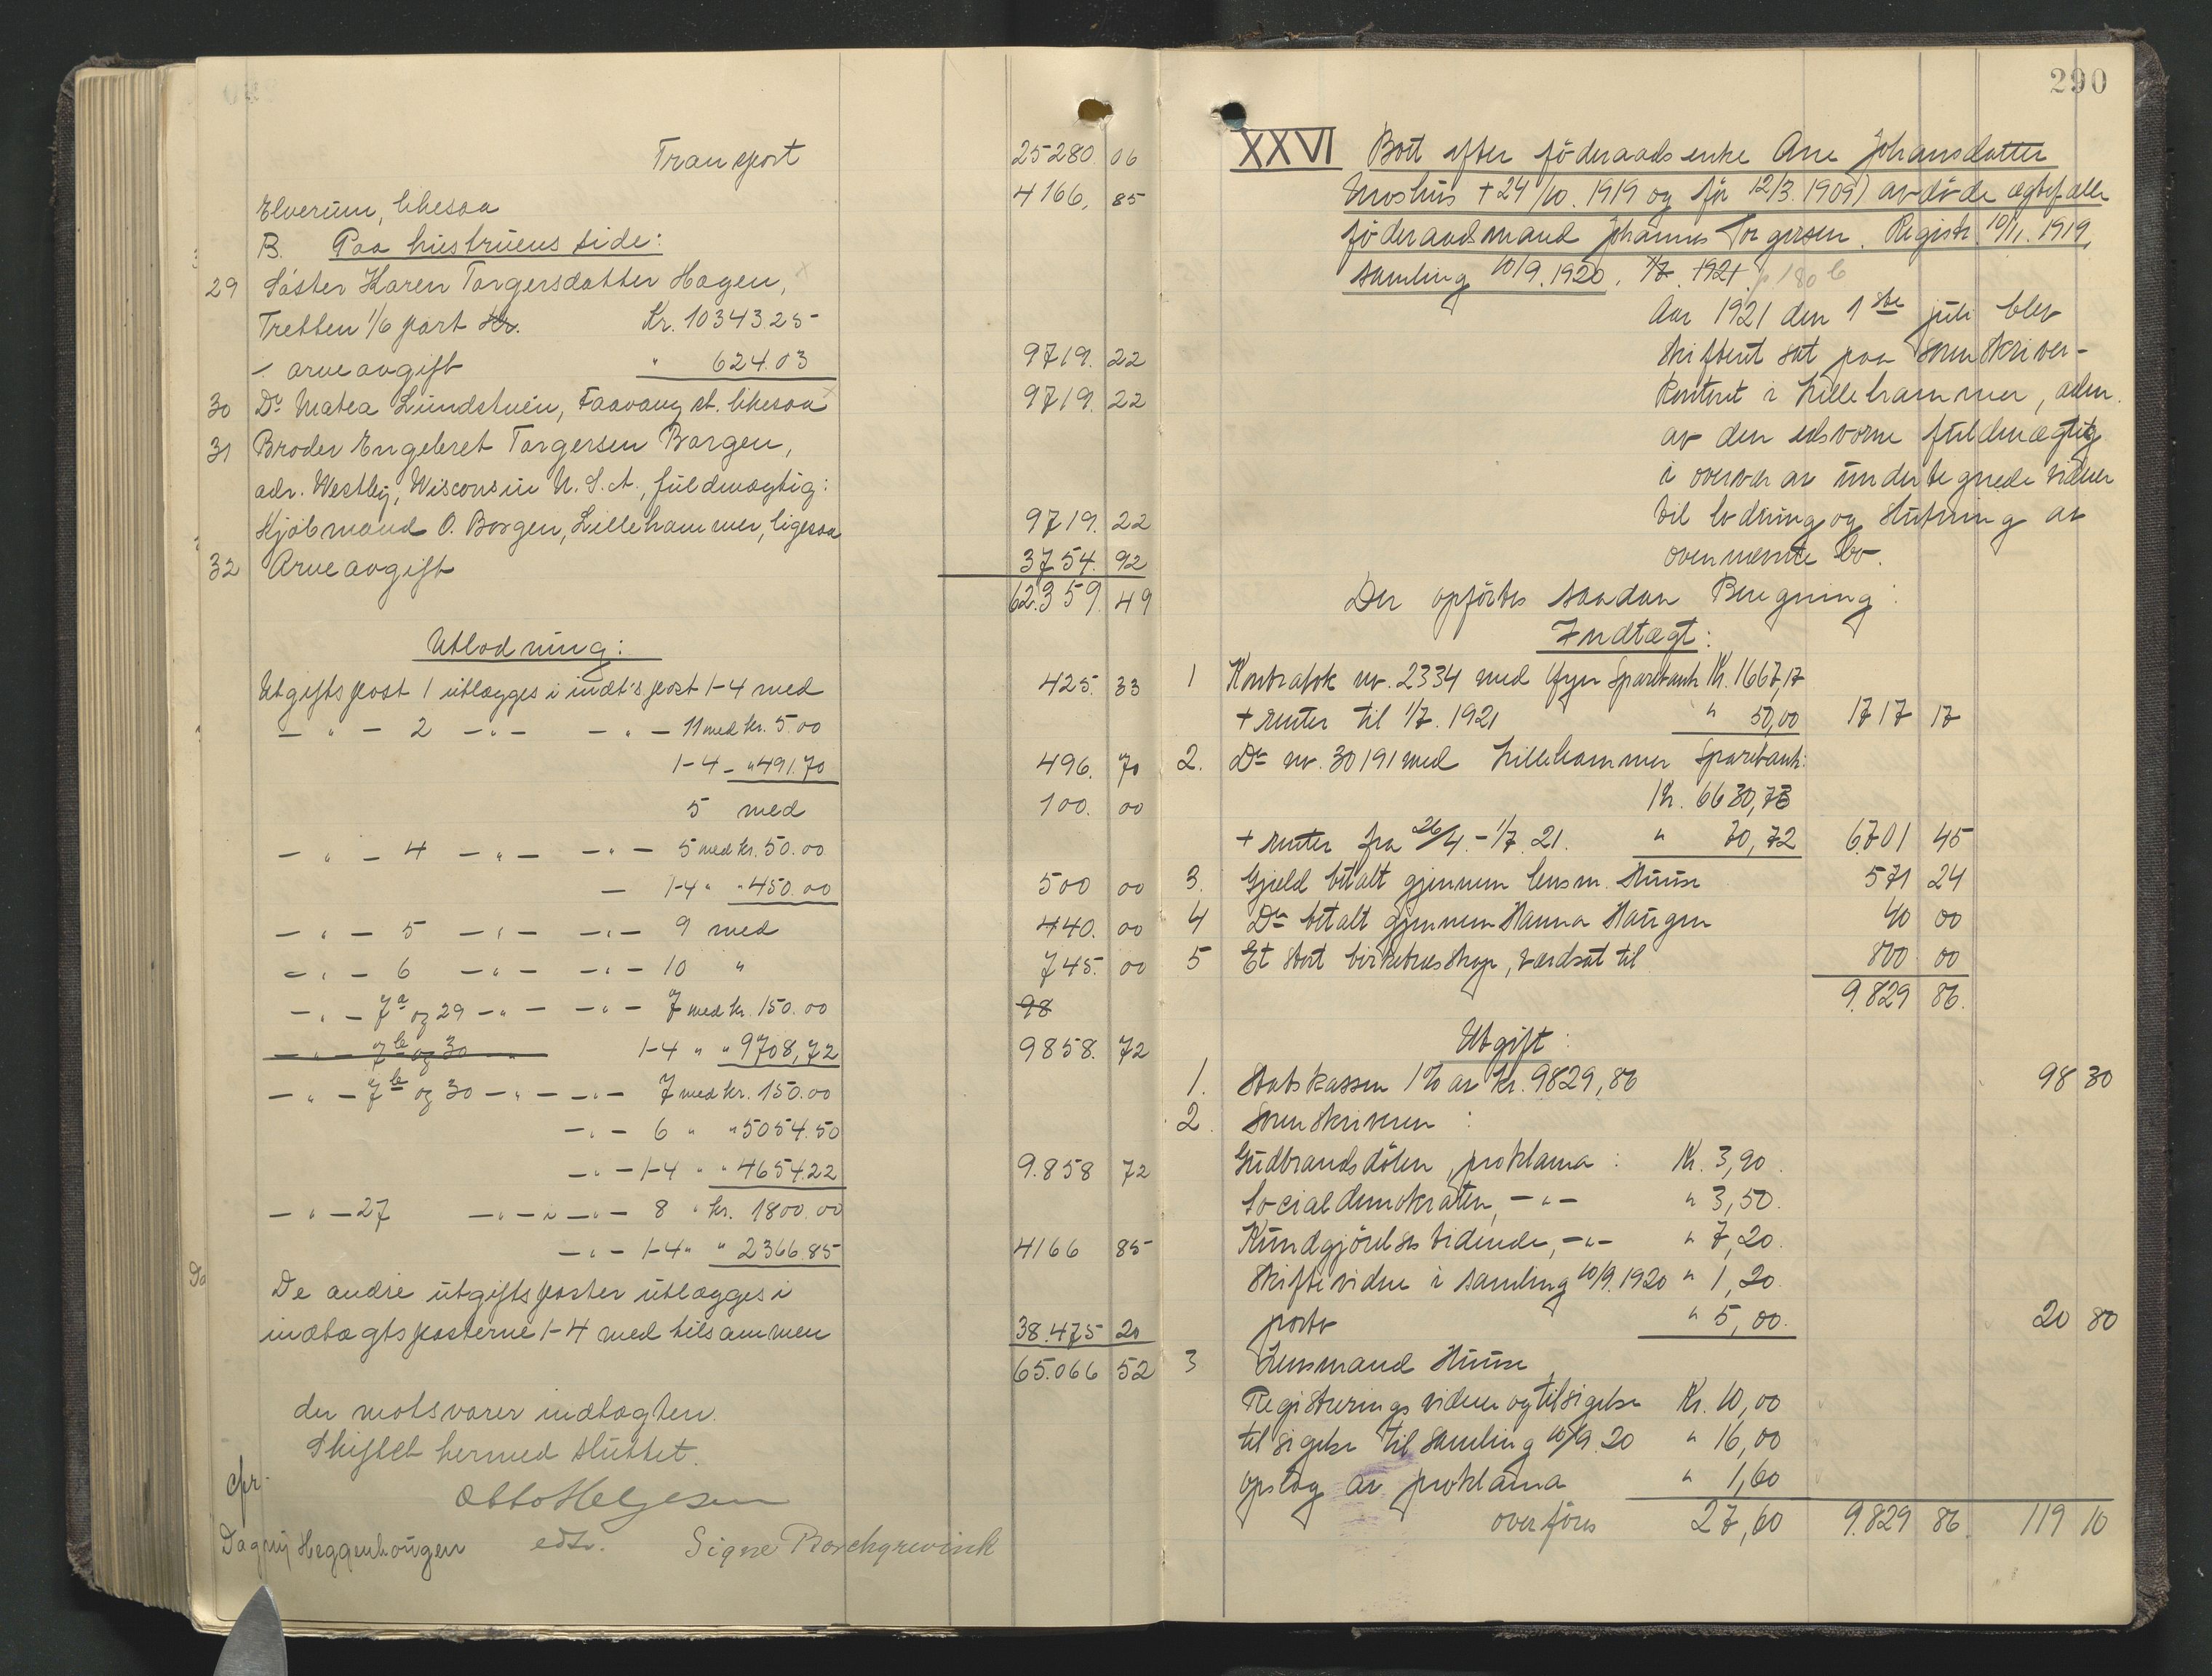 Transport 25280. 06
Elverum, likesaa 4166, 85
B. Paa hustruens side:
29 Søster Karen Torgersdatter Hagen,
Tretten 1/6 part Kr. Kr. 10343.25
÷ arveavgift " 624.03 9719. 22
30 Do Matea Lundstuen, Faavang st. likesaa 9719. 22
31 Broder Engebret Torgersen Borgen,
adr. Westby, Wisconsin U.S.A., fuldmægtig:
Kjøbmand O. Borgen, Lillehammer, ligesaa 9719. 22
32 Arveavgift 3754. 92
62.359. 49
Utlodning:
Utgiftspost 1 utlægges i indt's post 1-4 med 425. 33
— " — 2 — " — — " — 11 med kr. 5.00
1-4 — " 491.70 496. 70
5 med 100. 00
— " — 4 — " — — " — 5 med kr. 50.00
— 1-4 " " 450.00 500 00
— " — 5 — " — — " — 9 med 440. 00
— " — 6 — " — — " — 10 " 745. 00
— " — 7a og 29 — " — — " — 7 med kr. 150.00 98
— " — 7b og 30 — " — 1-4 " " 9708,72 9858. 72
— " — 7b og 30 — " — — " — 7 med kr. 150.00
— " — 6 " " 5054.50
— " — 1-4 " " 4654.22 9.858 72
— " — 27 — " — i — " — 8 " kr. 1800.00
— " — 1-4 " " 2366.85 4166 85
De andre utgiftsposter utlægges i
indtægtsposterne 1-4 med tilsammen 38.475 20
65.066 52
der motsvarer indtægten.
Skiftet hermed sluttet.
Otto Helgesen
edsv.
Dagny Heggenhougen
Signe Borchgrevink
290
XXVI Boet efter føderaadsenke Ane Johansdatter
Moshus + 24/10. 1919 og før 12/3. 1909) avdøde ægtefælle
føderaadsmand Johannes Torgersen. Registr. 10/11. 1919,
samling 10/9. 1920. 1/7. 1921. p 180 b
Aar 1921 den 1ste juli blev
skifteret sat paa sorenskriver-
kontoret i Lillehammer, adm.
av den edsvorne fuldmægtig
i overvær av undertegnede vidner
til lodning og slutning av
ovennævnte bo.
Der opførtes saadan Beregning:
Indtægt:
1 Kontrabok nr. 2334 med Øyer Sparebank Kr. 1667,17
+ renter til 1/7. 1921 " 50,00 1717 17
2. Do nr. 30191 med Lillehammer Sparebank:
Kr. 6630,73
+ renter fra 26/4. - 1/7. 21. " 70,72 6.701 45
3. Gjeld betalt gjennem lensm. Huuse 571 24
4 Do betalt gjennem Hanna Haugen 40 00
5 Et stort birketræsskap, værdsat til 800 00
9.829 86.
Utgift:
1. Statskassen 1% av kr. 9829,86 98 30
2. Sorenskriveren:
Gudbrandsdølen, proklama: Kr. 3,90.
Socialdemokraten, — " — " 3,50.
Kundgjørelsestidende, — " — " 7,20.
Skiftevidne i samling 10/9. 1920 " 1,20.
porto " 5,00. 20 80
3 Lensmand Huuse
Registreringsvidner og tilsigelse Kr. 10,00
tilsigelse til samling 10/9. 20 " 16,00
opslag av proklama " 1,60
overføres 27,60 9.829 86. 119 10